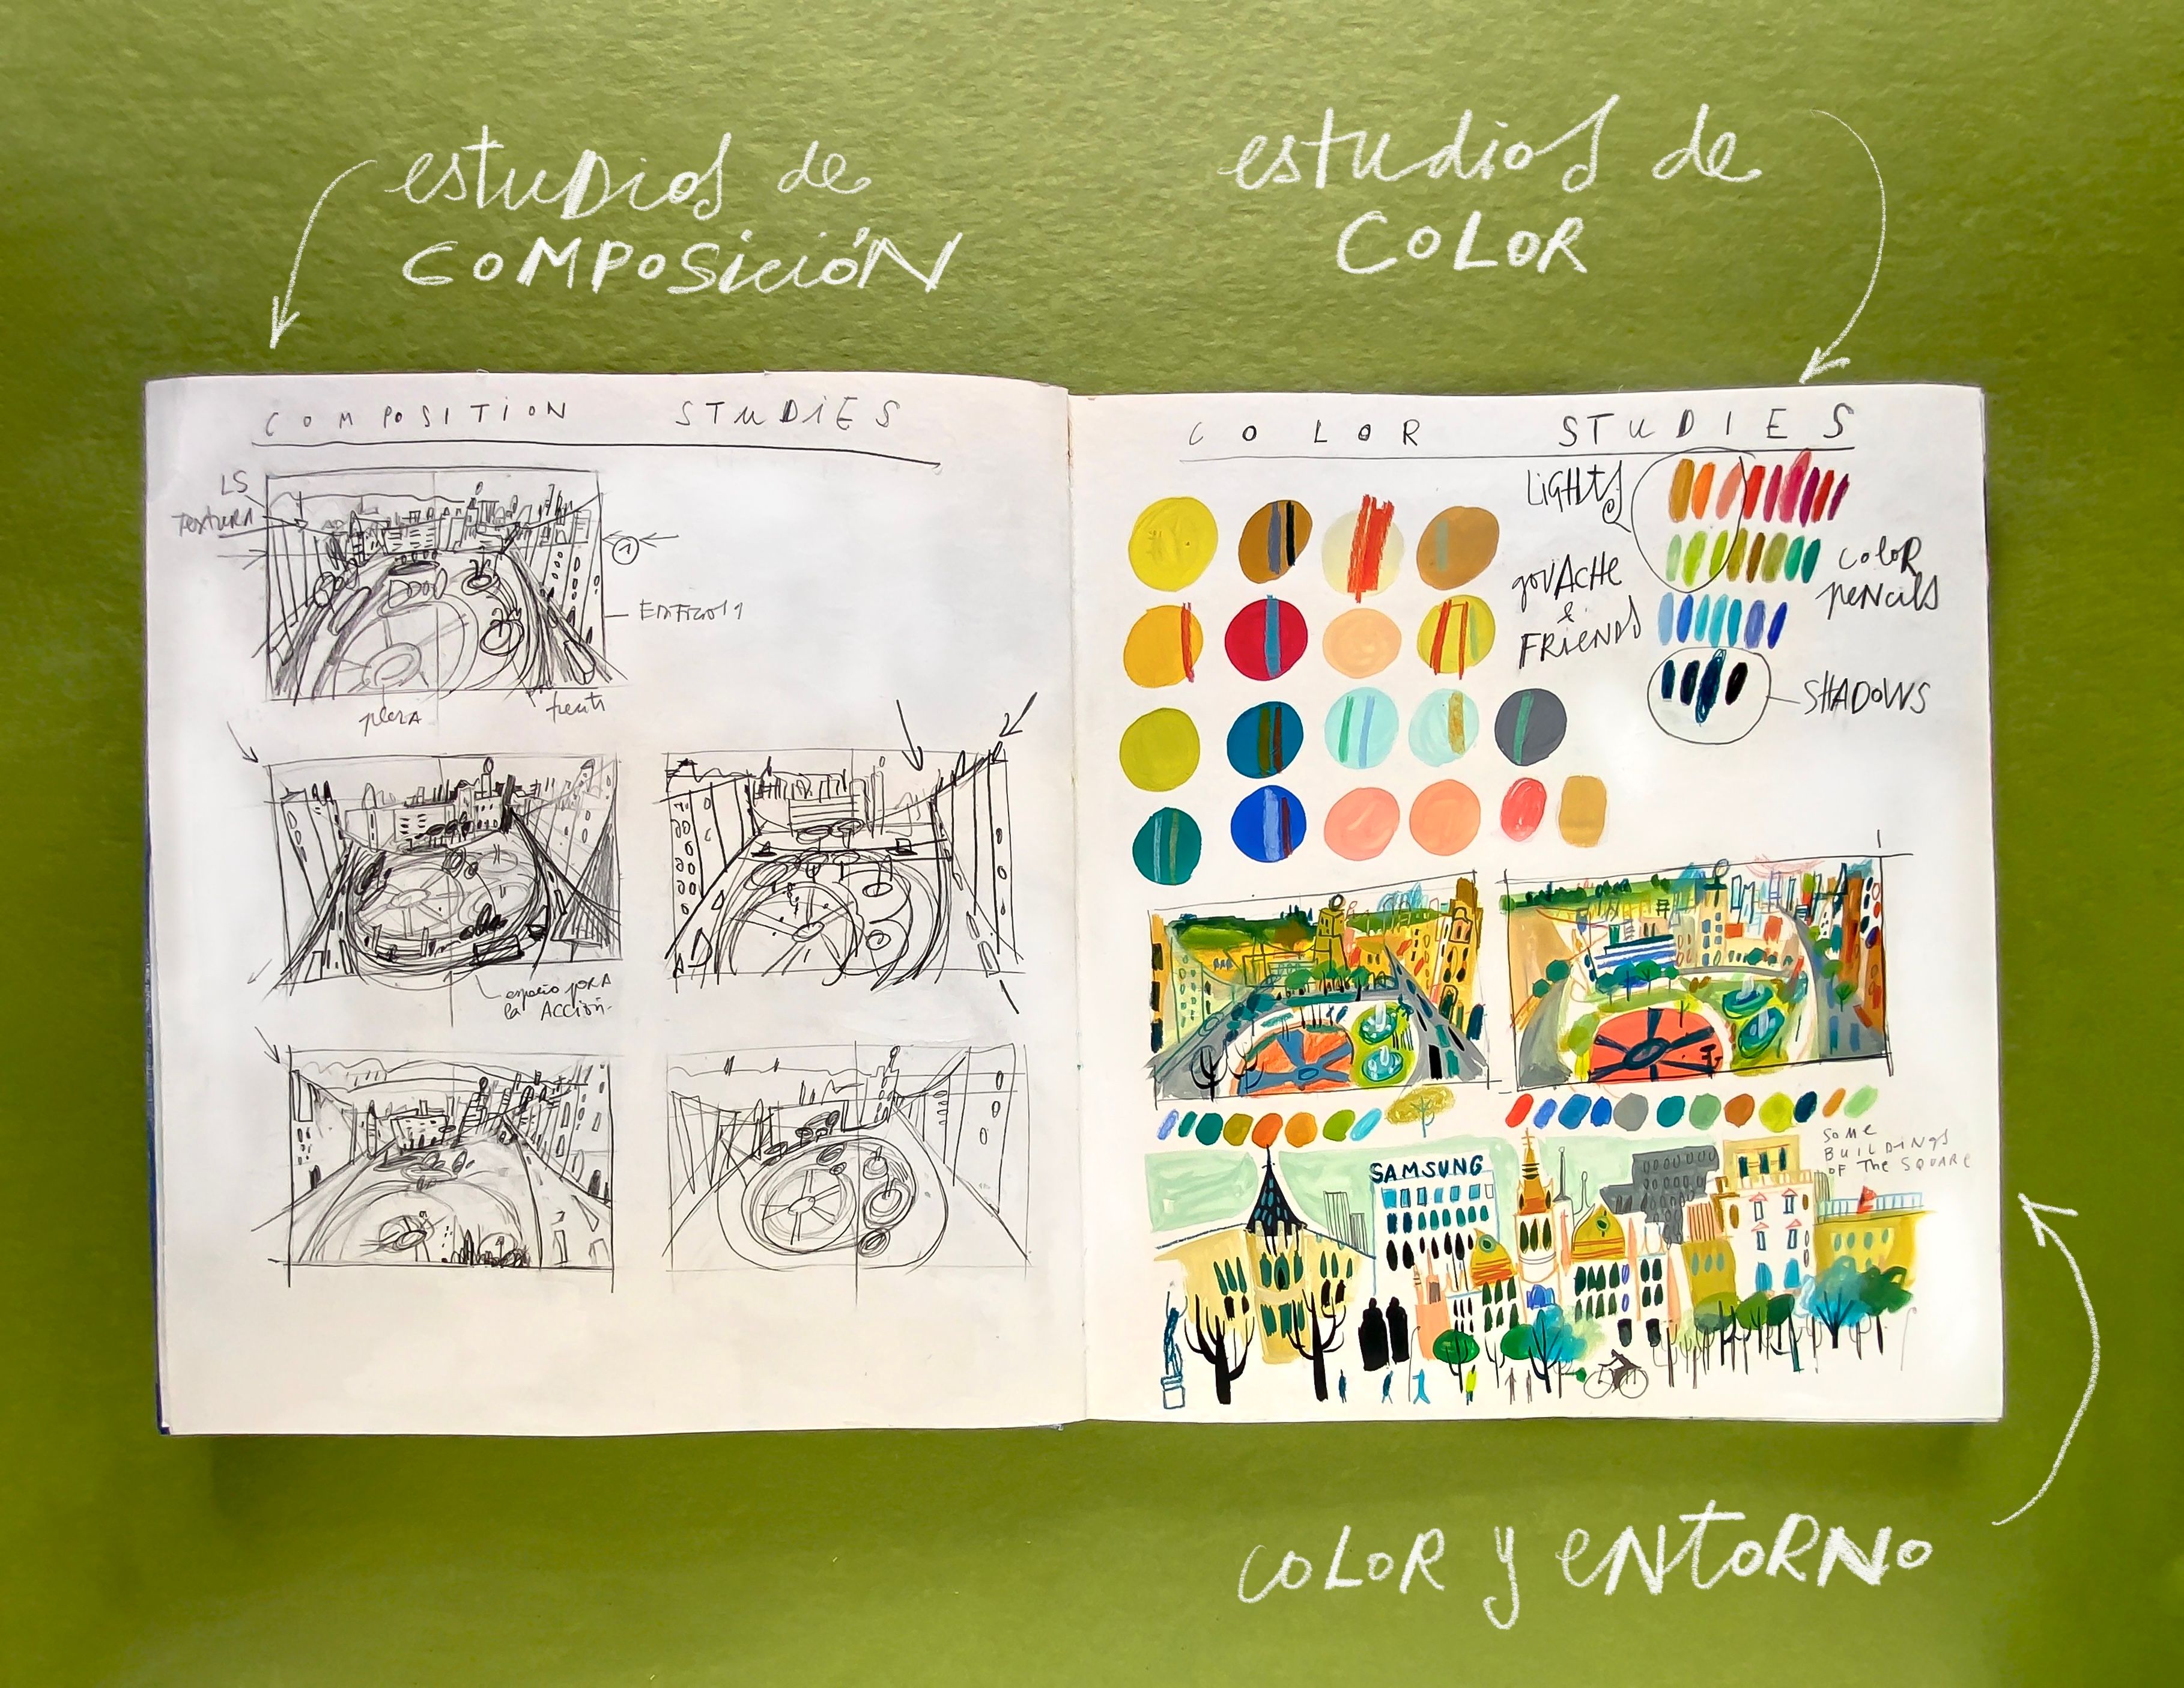 estudios de
COMPOSICIÓN
estudios de
COLOR
COMPOSITION STUDIES
LS
TEXTURA
1
plaza
espacio para
la ACCIÓN
COLOR STUDIES
LIGHTS
COLOR
PENCILS
GOUACHE
&
FRIENDS
SHADOWS
SOME
BUILDINGS
OF THE SQUARE
SAMSUNG
COLOR y ENTORNO